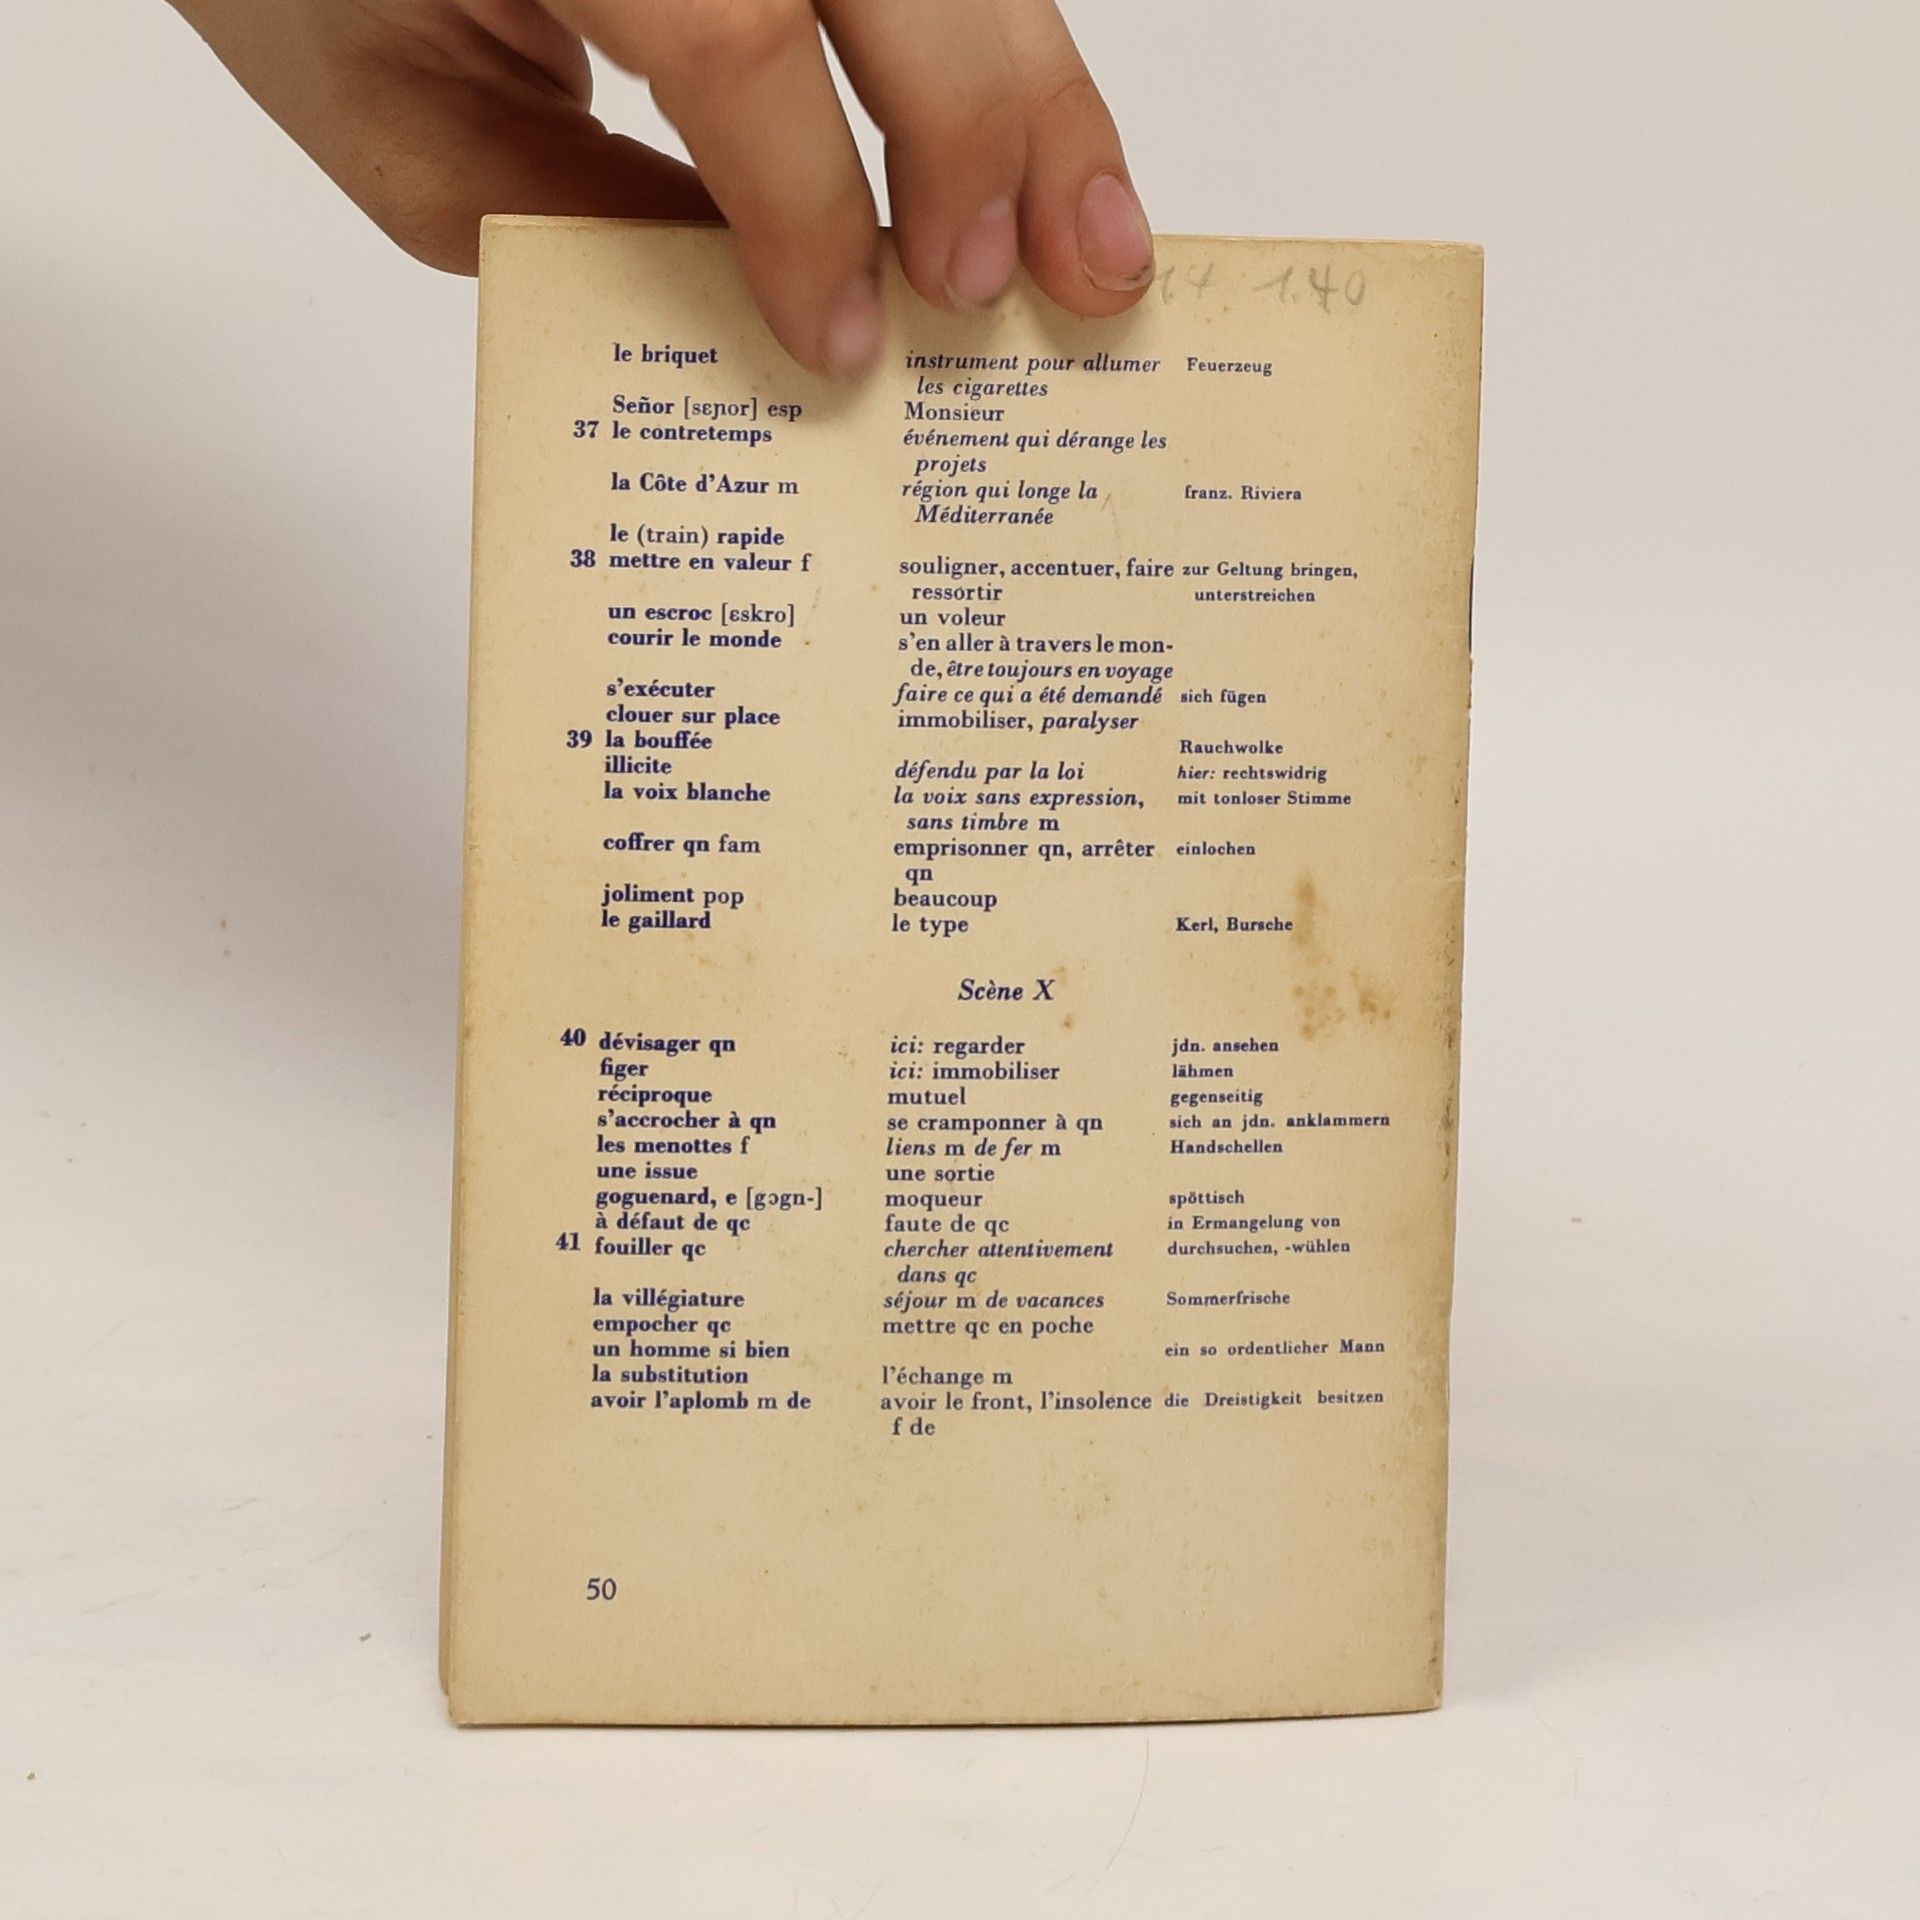 1.4 1.40
le briquet instrument pour allumer Feuerzeug
les cigarettes
Señor [sɛɲor] esp Monsieur
37 le contretemps événement qui dérange les
projets
la Côte d'Azur m région qui longe la franz. Riviera
Méditerranée
le (train) rapide
38 mettre en valeur f souligner, accentuer, faire zur Geltung bringen,
ressortir unterstreichen
un escroc [ɛskro] un voleur
courir le monde s'en aller à travers le mon-
de, être toujours en voyage
s'exécuter faire ce qui a été demandé sich fügen
clouer sur place immobiliser, paralyser
39 la bouffée Rauchwolke
illicite défendu par la loi hier: rechtswidrig
la voix blanche la voix sans expression, mit tonloser Stimme
sans timbre m
coffrer qn fam emprisonner qn, arrêter einlochen
qn
joliment pop beaucoup
le gaillard le type Kerl, Bursche
Scène X
40 dévisager qn ici: regarder jdn. ansehen
figer ici: immobiliser lähmen
réciproque mutuel gegenseitig
s'accrocher à qn se cramponner à qn sich an jdn. anklammern
les menottes f liens m de fer m Handschellen
une issue une sortie
goguenard, e [gɔgn-] moqueur spöttisch
à défaut de qc faute de qc in Ermangelung von
41 fouiller qc chercher attentivement durchsuchen, -wühlen
dans qc
la villégiature séjour m de vacances Sommerfrische
empocher qc mettre qc en poche
un homme si bien ein so ordentlicher Mann
la substitution l'échange m
avoir l'aplomb m de avoir le front, l'insolence die Dreistigkeit besitzen
f de
50